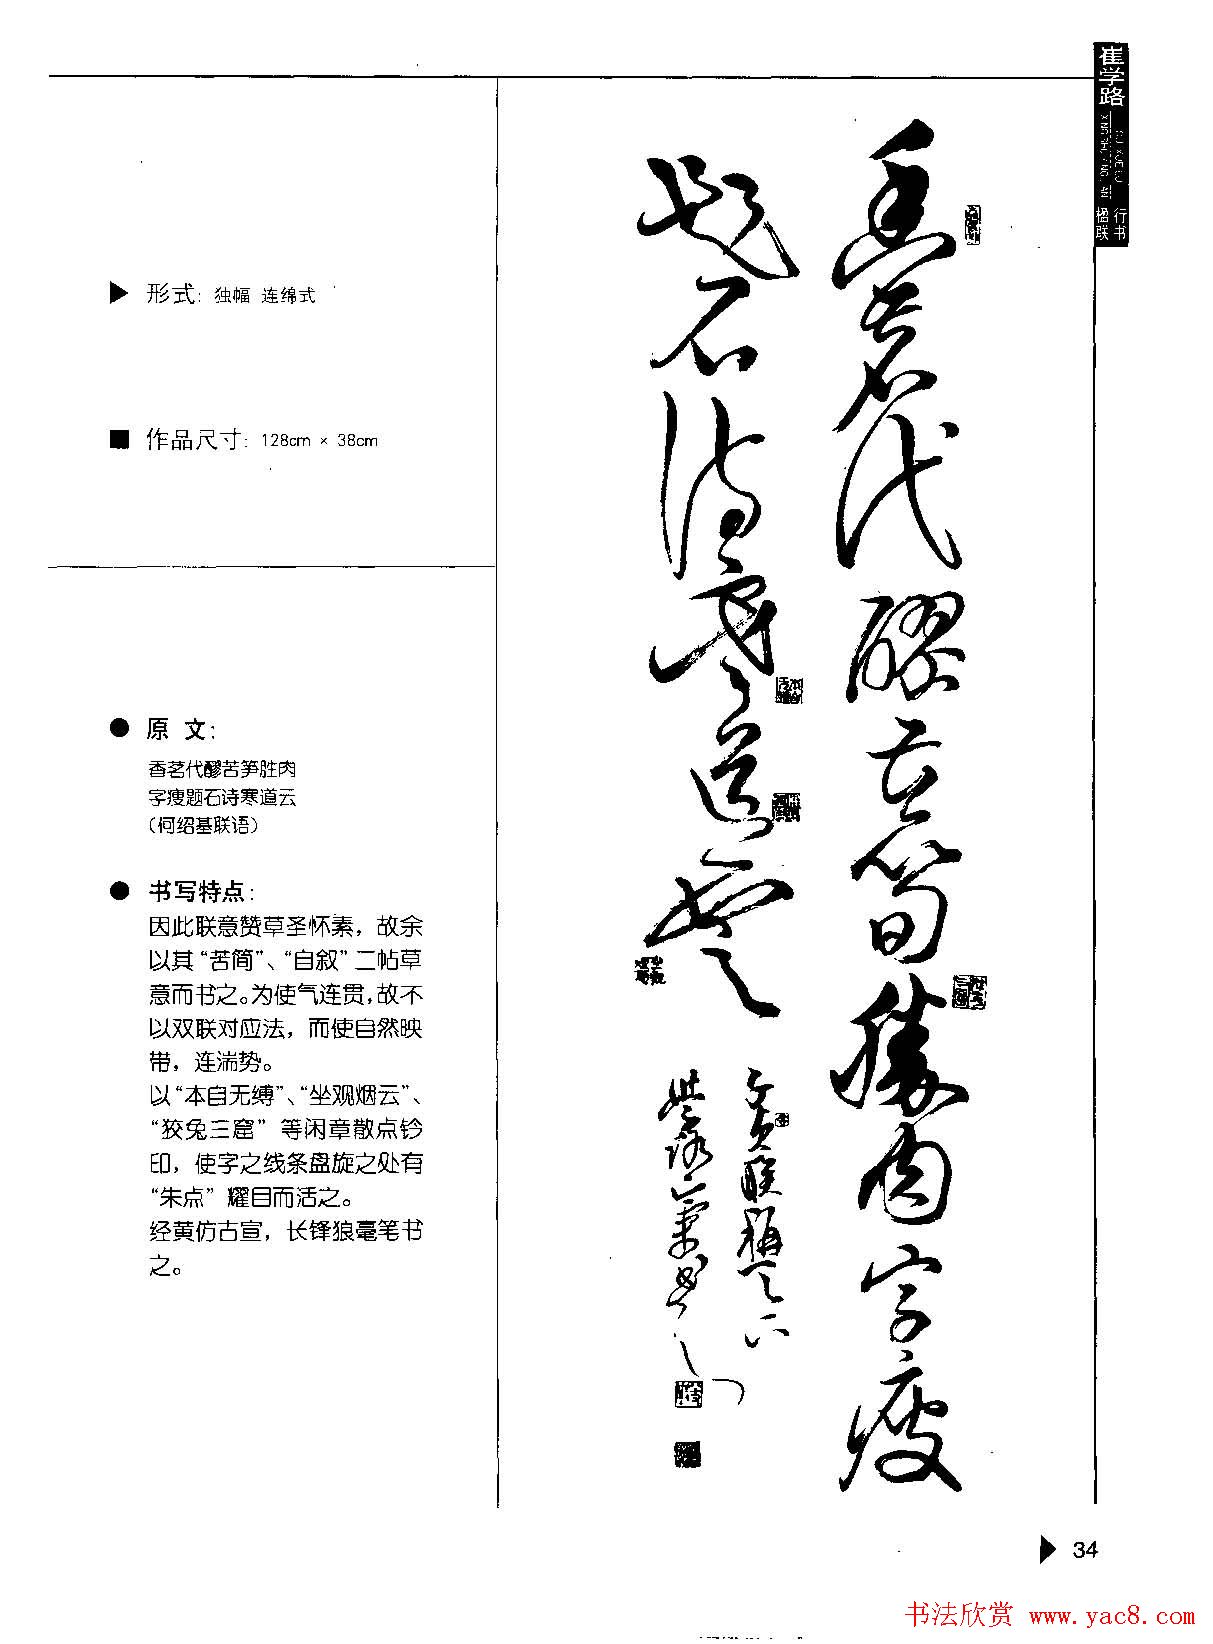 崔学路
行书
楹联
形式：独幅 连绵式
作品尺寸：128cm × 38cm
原 文：
香茗代醪苦笋胜肉
字瘦题石诗寒道云
（何绍基联语）
书写特点：
因此联意赞草圣怀素，故余
以其“苦简”、“自叙”二帖草
意而书之。为使气连贯，故不
以双联对应法，而使自然映
带，连湍势。
以“本自无缚”、“坐观烟云”、
“狡兔三窟”等闲章散点钤
印，使字之线条盘旋之处有
“朱点”耀目而活之。
经黄仿古宣，长锋狼毫笔书
之。
香茗代醪苦筍勝肉字瘦
題石詩寒道雲
34
书法欣赏 www.yac8.com